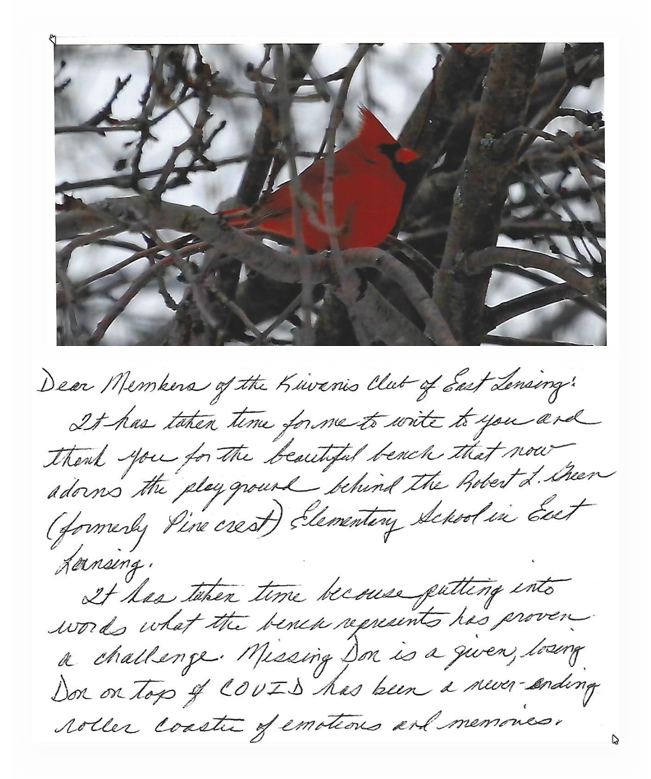 Dear Members of the Kiwanis Club of East Lansing:
It has taken time for me to write to you and
thank you for the beautiful bench that now
adorns the playground behind the Robert L. Green
(formerly Pinecrest) Elementary School in East
Lansing.
It has taken time because putting into
words what the bench represents has proven
a challenge. Missing Don is a given, losing
Don on top of COVID has been a never-ending
roller coaster of emotions and memories.